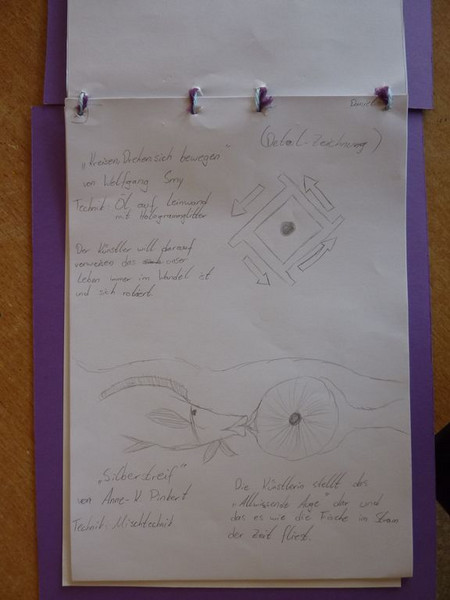 (Detail-Zeichnung)
„Kreisen Drehen sich bewegen"
von Wolfgang Smy
Technik Öl auf Leinwand
mit Hologrammglitter
Der Künstler will darauf
verweisen das unser
Leben immer im Wandel ist
und sich rotiert.
„Silberstreif"
von Anne-K. Pinkert
Technik: Mischtechnik
Die Künstlerin stellt das
„Allwissende Auge" dar und
das es wie die Fische im Strom
der Zeit fließt.